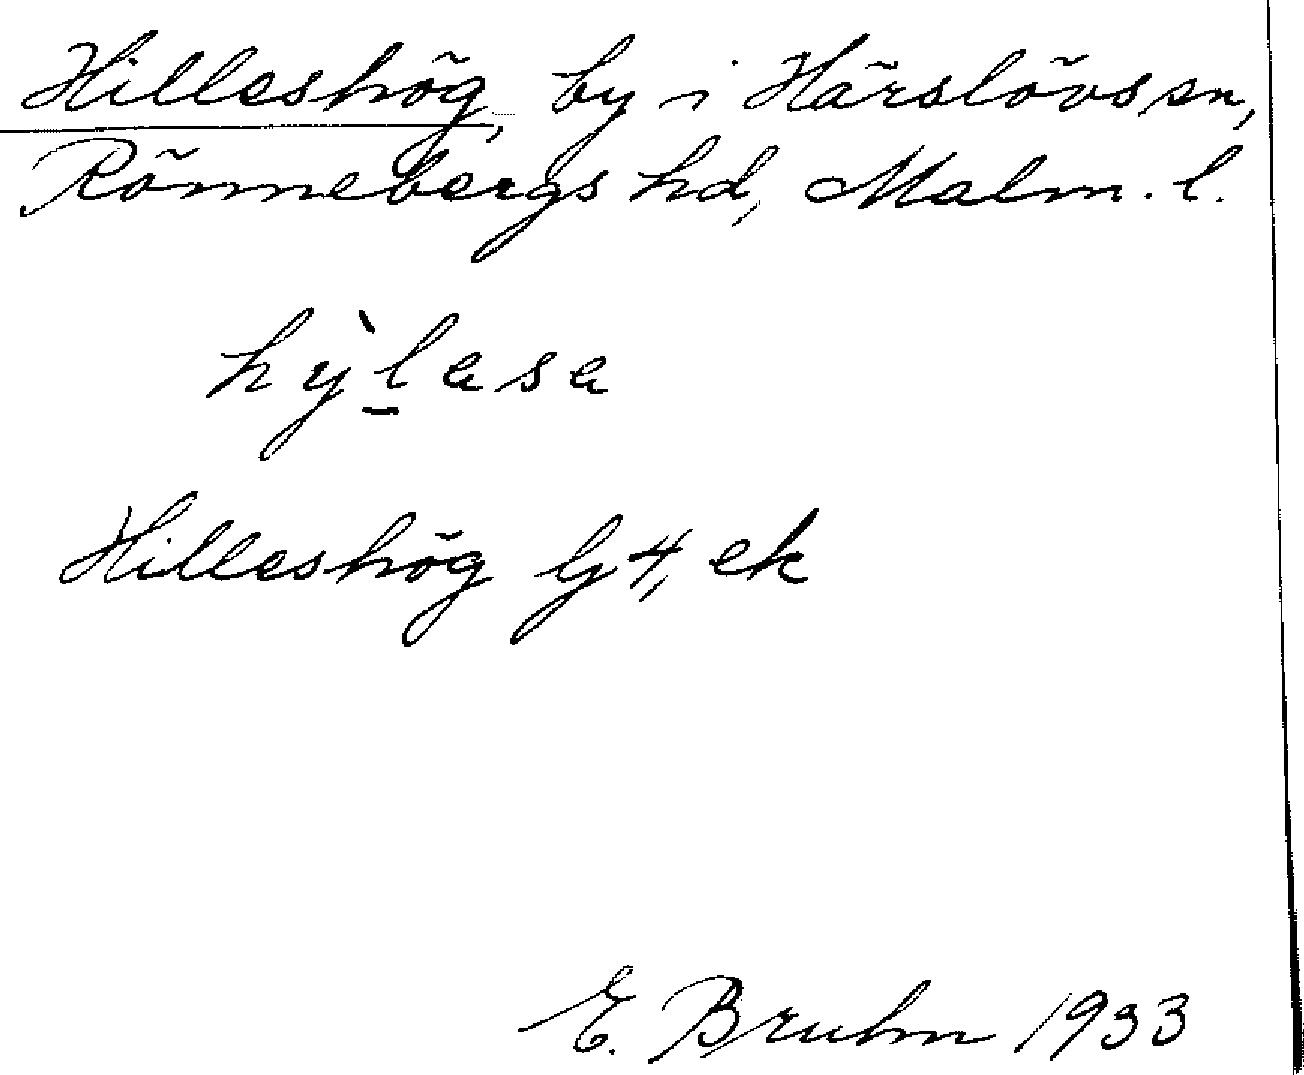 Hilleshög, by i Härslövs sn,
Rönnebergs hd, Malm. l.
hỳ̱lasa
Hilleshög G4, ek
E. Bruhn 1933